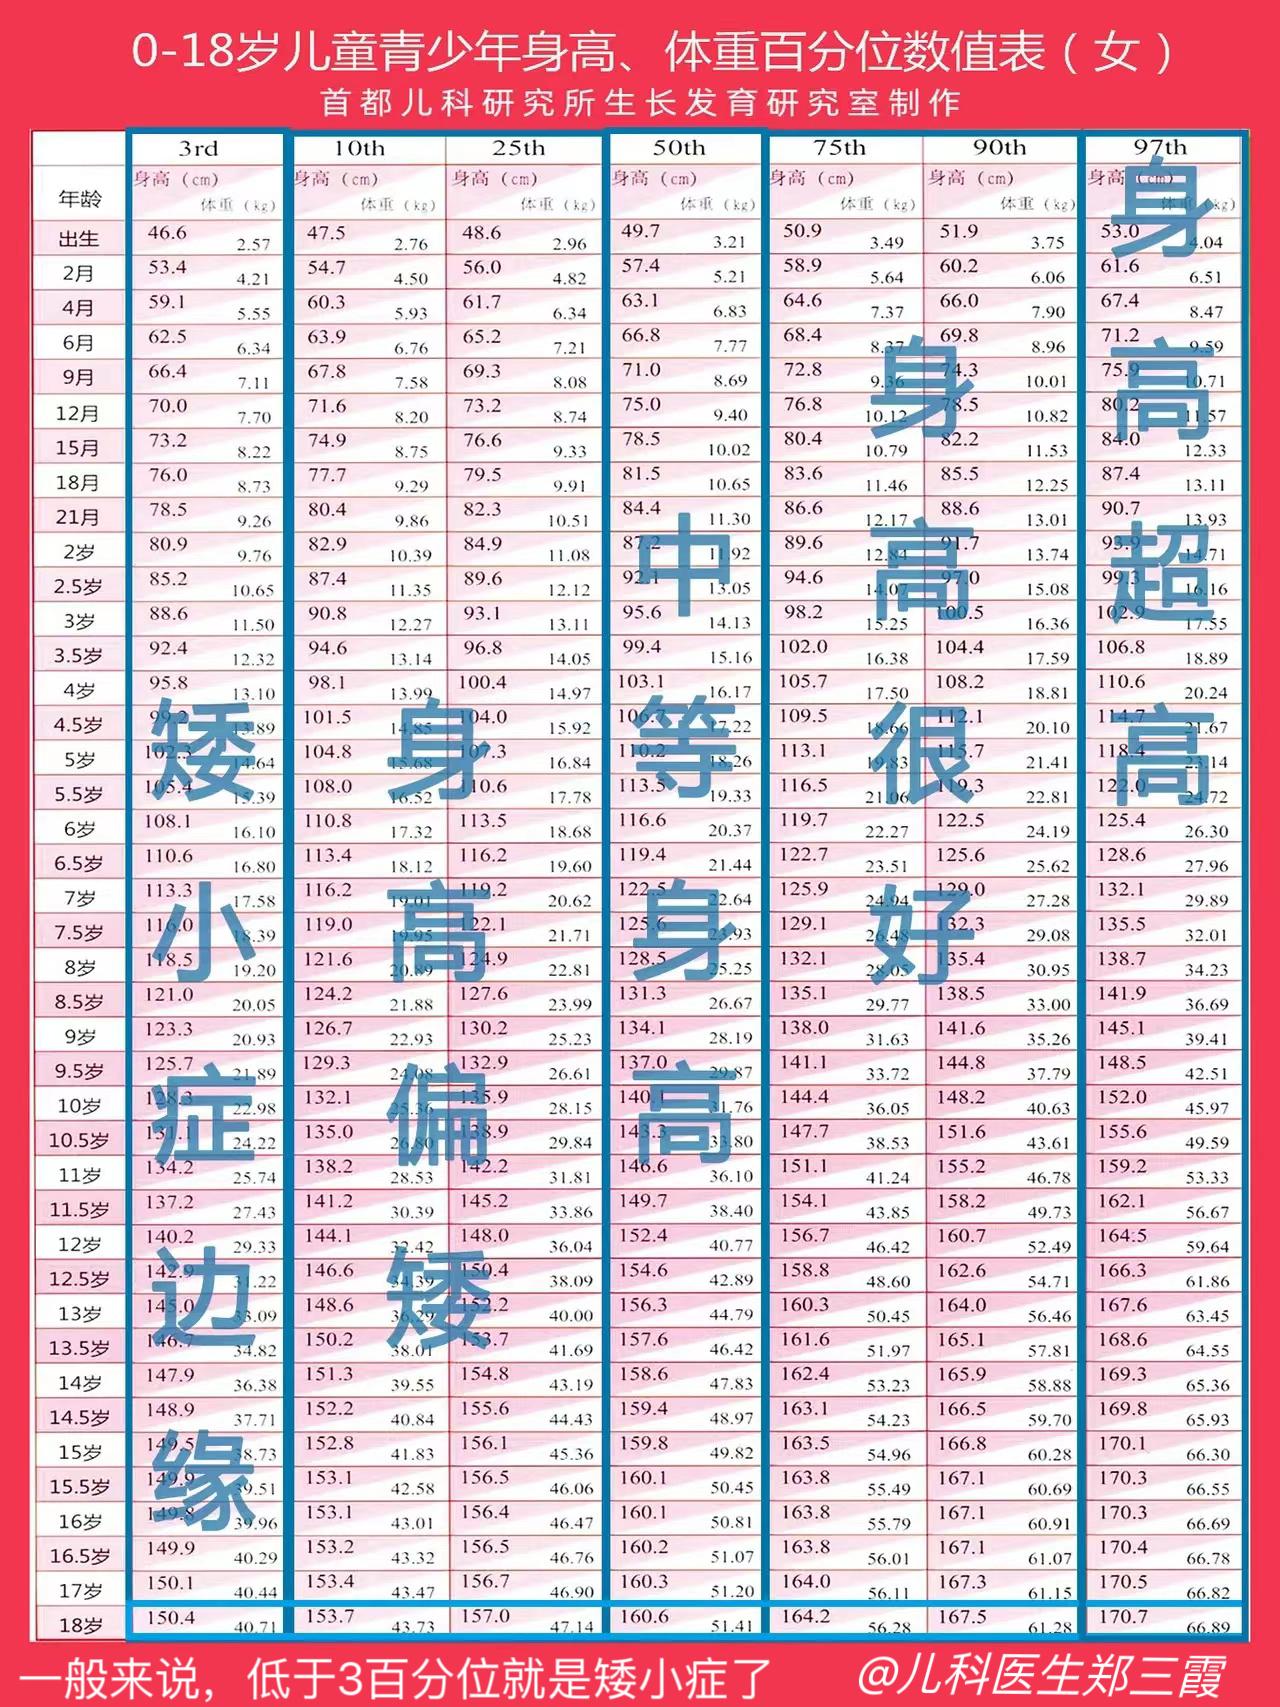 0-18岁儿童青少年身高、体重百分位数值表（女）
首都儿科研究所生长发育研究室制作
3rd 10th 25th 50th 75th 90th 97th
年龄 身高（cm） 体重（kg） 身高（cm） 体重（kg） 身高（cm） 体重（kg） 身高（cm） 体重（kg） 身高（cm） 体重（kg） 身高（cm） 体重（kg） 身高（cm） 体重（kg）
出生 46.6 2.57 47.5 2.76 48.6 2.96 49.7 3.21 50.9 3.49 51.9 3.75 53.0 4.04
2月 53.4 4.21 54.7 4.50 56.0 4.82 57.4 5.21 58.9 5.64 60.2 6.06 61.6 6.51
4月 59.1 5.55 60.3 5.93 61.7 6.34 63.1 6.83 64.6 7.37 66.0 7.90 67.4 8.47
6月 62.5 6.34 63.9 6.76 65.2 7.21 66.8 7.77 68.4 8.37 69.8 8.96 71.2 9.59
9月 66.4 7.11 67.8 7.58 69.3 8.08 71.0 8.69 72.8 9.36 74.3 10.01 75.9 10.71
12月 70.0 7.70 71.6 8.20 73.2 8.74 75.0 9.40 76.8 10.12 78.5 10.82 80.2 11.57
15月 73.2 8.22 74.9 8.75 76.6 9.33 78.5 10.02 80.4 10.79 82.2 11.53 84.0 12.33
18月 76.0 8.73 77.7 9.29 79.5 9.91 81.5 10.65 83.6 11.46 85.5 12.25 87.4 13.11
21月 78.5 9.26 80.4 9.86 82.3 10.51 84.4 11.30 86.6 12.17 88.6 13.01 90.7 13.93
2岁 80.9 9.76 82.9 10.39 84.9 11.08 87.2 11.92 89.6 12.84 91.7 13.74 93.9 14.71
2.5岁 85.2 10.65 87.4 11.35 89.6 12.12 92.1 13.05 94.6 14.07 97.0 15.08 99.3 16.16
3岁 88.6 11.50 90.8 12.27 93.1 13.11 95.6 14.13 98.2 15.25 100.5 16.36 102.9 17.55
3.5岁 92.4 12.32 94.6 13.14 96.8 14.05 99.4 15.16 102.0 16.38 104.4 17.59 106.8 18.89
4岁 95.8 13.10 98.1 13.99 100.4 14.97 103.1 16.17 105.7 17.50 108.2 18.81 110.6 20.24
4.5岁 99.2 13.89 101.5 14.85 104.0 15.92 106.7 17.22 109.5 18.66 112.1 20.10 114.7 21.67
5岁 102.3 14.64 104.8 15.68 107.3 16.84 110.2 18.26 113.1 19.83 115.7 21.41 118.4 23.14
5.5岁 105.4 15.39 108.0 16.52 110.6 17.78 113.5 19.33 116.5 21.06 119.3 22.81 122.0 24.72
6岁 108.1 16.10 110.8 17.32 113.5 18.68 116.6 20.37 119.7 22.27 122.5 24.19 125.4 26.30
6.5岁 110.6 16.80 113.4 18.12 116.2 19.60 119.4 21.44 122.7 23.51 125.6 25.62 128.6 27.96
7岁 113.3 17.58 116.2 19.01 119.2 20.62 122.5 22.64 125.9 24.94 129.0 27.28 132.1 29.89
7.5岁 116.0 18.39 119.0 19.95 122.1 21.71 125.6 23.93 129.1 26.48 132.3 29.08 135.5 32.01
8岁 118.5 19.20 121.6 20.89 124.9 22.81 128.5 25.25 132.1 28.05 135.4 30.95 138.7 34.23
8.5岁 121.0 20.05 124.2 21.88 127.6 23.99 131.3 26.67 135.1 29.77 138.5 33.00 141.9 36.69
9岁 123.3 20.93 126.7 22.93 130.2 25.23 134.1 28.19 138.0 31.63 141.6 35.26 145.1 39.41
9.5岁 125.7 21.89 129.3 24.08 132.9 26.61 137.0 29.87 141.1 33.72 144.8 37.79 148.5 42.51
10岁 128.3 22.98 132.1 25.36 135.9 28.15 140.1 31.76 144.4 36.05 148.2 40.63 152.0 45.97
10.5岁 131.1 24.22 135.0 26.80 138.9 29.84 143.3 33.80 147.7 38.53 151.6 43.61 155.6 49.59
11岁 134.2 25.74 138.2 28.53 142.2 31.81 146.6 36.10 151.1 41.24 155.2 46.78 159.2 53.33
11.5岁 137.2 27.43 141.2 30.39 145.2 33.86 149.7 38.40 154.1 43.85 158.2 49.73 162.1 56.67
12岁 140.2 29.33 144.1 32.42 148.0 36.04 152.4 40.77 156.7 46.42 160.7 52.49 164.5 59.64
12.5岁 142.9 31.22 146.6 34.39 150.4 38.09 154.6 42.89 158.8 48.60 162.6 54.71 166.3 61.86
13岁 145.0 33.09 148.6 36.29 152.2 40.00 156.3 44.79 160.3 50.45 164.0 56.46 167.6 63.45
13.5岁 146.7 34.82 150.2 38.01 153.7 41.69 157.6 46.42 161.6 51.97 165.1 57.81 168.6 64.55
14岁 147.9 36.38 151.3 39.55 154.8 43.19 158.6 47.83 162.4 53.23 165.9 58.88 169.3 65.36
14.5岁 148.9 37.71 152.2 40.84 155.6 44.43 159.4 48.97 163.1 54.23 166.5 59.70 169.8 65.93
15岁 149.5 38.73 152.8 41.83 156.1 45.36 159.8 49.82 163.5 54.96 166.8 60.28 170.1 66.30
15.5岁 149.9 39.51 153.1 42.58 156.5 46.06 160.1 50.45 163.8 55.49 167.1 60.69 170.3 66.55
16岁 149.8 39.96 153.1 43.01 156.4 46.47 160.1 50.81 163.8 55.79 167.1 60.91 170.3 66.69
16.5岁 149.9 40.29 153.2 43.32 156.5 46.76 160.2 51.07 163.8 56.01 167.1 61.07 170.4 66.78
17岁 150.1 40.44 153.4 43.47 156.7 46.90 160.3 51.20 164.0 56.11 167.3 61.15 170.5 66.82
18岁 150.4 40.71 153.7 43.73 157.0 47.14 160.6 51.41 164.2 56.28 167.5 61.28 170.7 66.89
矮小症边缘
身高偏矮
中等身高
身高很好
身高超高
一般来说，低于3百分位就是矮小症了
@儿科医生郑三霞